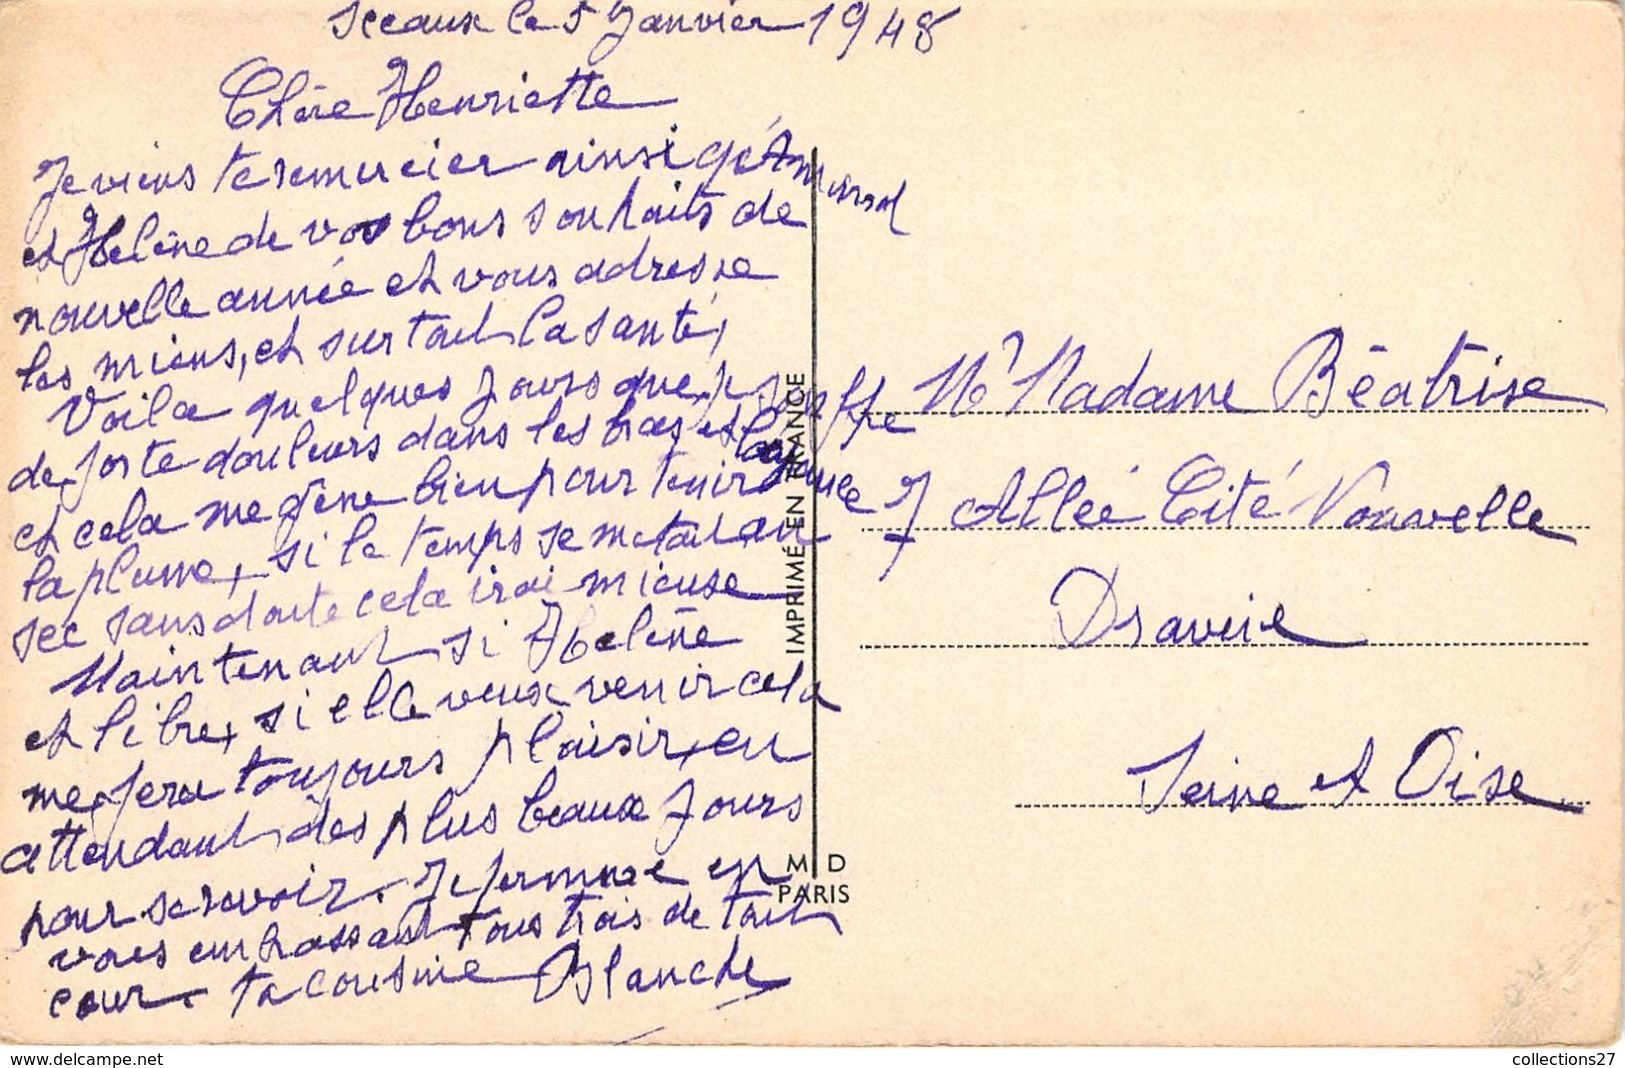 Sceaux le 5 Janvier 1948
Chère Henriette
Je viens te remercier ainsi
et Helène de vos bons souhaits de
nouvelle année et vous adresse
les miens, et surtout la santé,
Voila quelques jours que je souffre
de forte douleurs dans les bras et la
et cela me gène bien pour tenir
la plume, si le temps se metait au
sec sans doute cela irai mieuse
Maintenant si Helène
et libre, si elle veux venir cela
me fera toujours plaisir, en
attendant des plus beaux jours
pour se revoir. Je ferme en
vous embrassant tous trois de tout
cœur. ta cousine Blanche
Mr Madame Béatrise
7 Allée Cité Nouvelle
Draveil
Seine et Oise
IMPRIMÉ EN FRANCE
M D
PARIS
www.delcampe.net
collections27